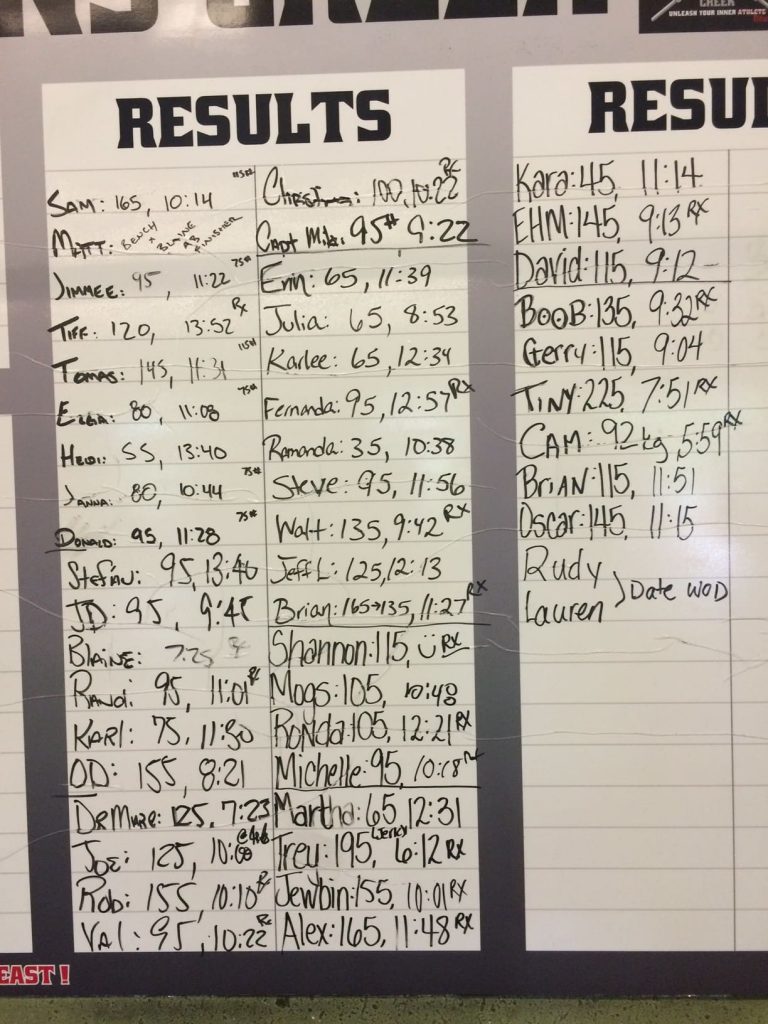 CREEK
UNLEASH YOUR INNER ATHLETE
RESULTS
SAM: 165, 10:14
MATT: BENCH + BLAINE AB FINISHER
JIMMEE: 95, 11:22 75#
TIFF: 120, 13:52 Rx
TOMAS: 145, 11:31 115#
80, 11:08 75#
HEIDI: 55, 13:40
JANNA: 80, 10:44 75#
DONALD: 95, 11:28 75#
Stefan: 95, 13:40
JD: 95, 9:45
BLAINE: 7:25 Rx
RANDI: 95, 11:01 Rx
KARL: 75, 11:30
OD: 155, 8:21
125, 7:23
JOE: 125,
Rob: 155, 10:10 Rx
VAL: 95, 10:22 Rx
Christina: 100, 10:22 Rx
Capt Mike: 95# 9:22
Erin: 65, 11:39
Julia: 65, 8:53
Karlee: 65, 12:34
Fernanda: 95, 12:57 RX
Ramanda: 35, 10:38
Steve: 95, 11:56
Walt: 135, 9:42 RX
Jeff L: 125, 12:13
Brian: 165→135, 11:27 RX
Shannon: 115, RX
Mogs: 105, 10:48
Ronda: 105, 12:21 RX
Michelle: 95, 10:18 Rx
Martha: 65, 12:31
Trey: 195, (Jerk) 6:12 RX
Jewbin: 155, 10:01 RX
Alex: 165, 11:48 RX
RESU
Kara: 45, 11:14
EHM: 145, 9:13 RX
David: 115, 9:12
BOOB: 135, 9:32 RX
Gerry: 115, 9:04
TINY: 225, 7:51 RX
CAM: 92 kg, 5:59 RX
BRIAN: 115, 11:51
Oscar: 145, 11:15
Rudy
Lauren } Date WOD
EAST!